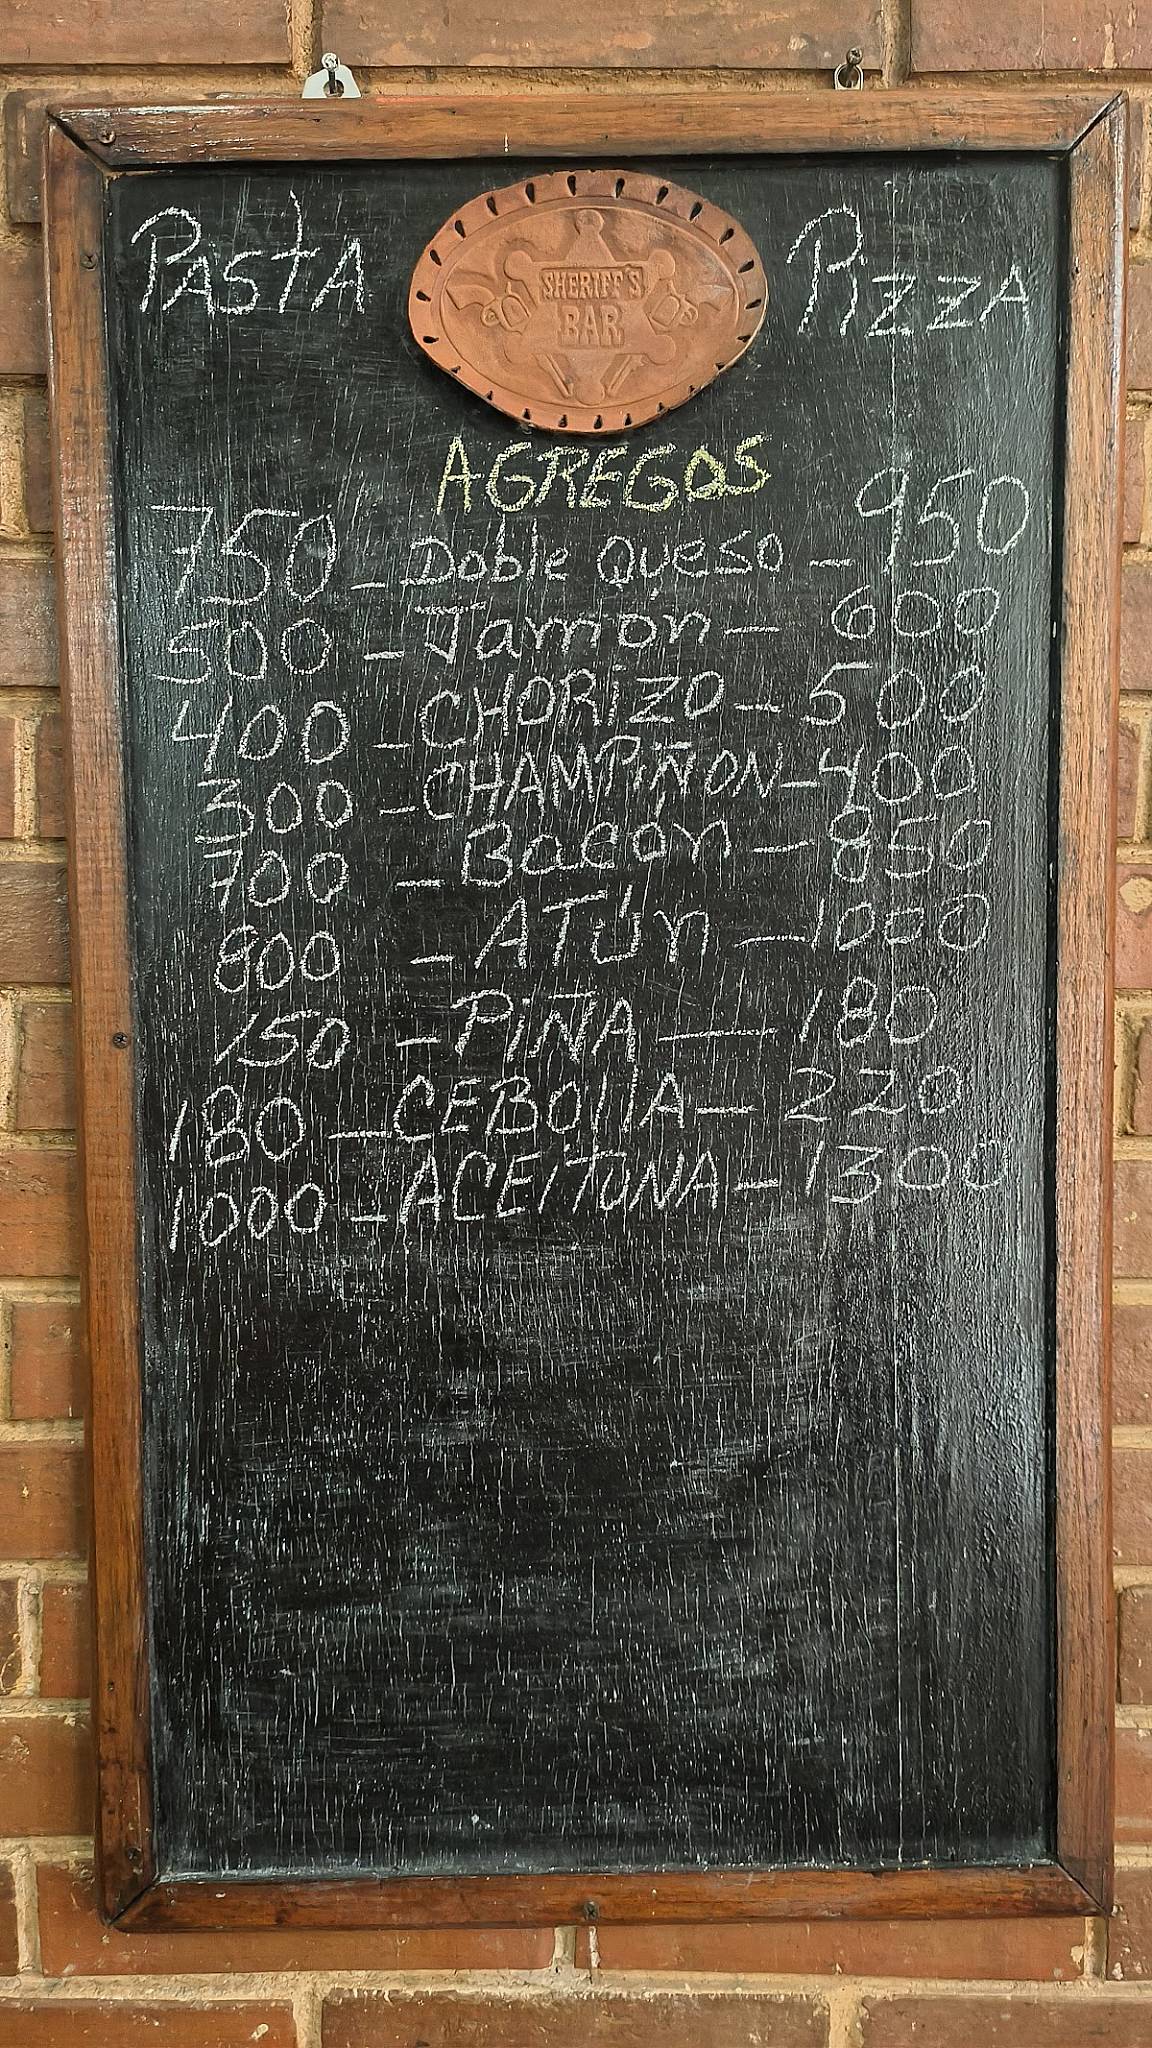 PASTA PIZZA
SHERIFF'S
BAR
AGREGOS
750 - Doble Queso - 950
500 - Jamón - 600
400 - CHORIZO - 500
300 - CHAMPIÑON - 400
700 - Bacón - 850
800 - ATÚN - 1000
150 - PIÑA - 180
180 - CEBOllA - 220
1000 - ACEITUNA - 1300